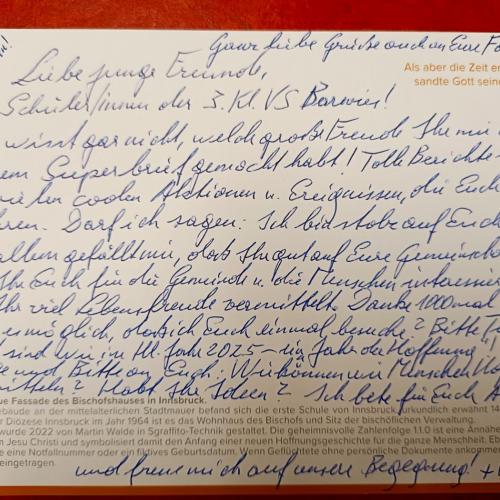 Ganz liebe Grüße auch an Eure Fa
Als aber die Zeit er
sandte Gott sein
Liebe junge Freunde,
Schüler/innen der 3. Kl. VS Barwies!
wisst gar nicht, welch große Freude Ihr mir
em Superbrief gemacht habt! Tolle Berichte
vielen coolen Aktionen u. Ereignissen, die Euch
ren. Darf ich sagen: Ich bin stolz auf Euch
allem gefällt mir, dass Ihr gut auf Eure Gemeinscha
Ihr Euch für die Gemeinde u. die Menschen interessier
Ihr viel Lebensfreude vermittelt. Danke 1000mal
es möglich, dass ich Euch einmal besuche? Bitte
sind wir im Hl. Jahr 2025 – ein Jahr der Hoffnung!
und Bitte an Euch: Wie können wir Menschen Ho
mitteln? Habt Ihr Ideen? Ich bete für Euch
ue Fassade des Bischofshauses in Innsbruck.
ebäude an der mittelalterlichen Stadtmauer befand sich die erste Schule von Innsbruck, urkundlich erwähnt 14
r Diözese Innsbruck im Jahr 1964 ist es das Wohnhaus des Bischofs und Sitz der bischöflichen Verwaltung.
wurde 2022 von Martin Walde in Sgraffito-Technik gestaltet. Die geheimnisvolle Zahlenfolge 1.1.0 ist eine Annähe
n Jesu Christi und symbolisiert damit den Anfang einer neuen Hoffnungsgeschichte für die ganze Menschheit. Eb
e eine Notfallnummer oder ein fiktives Geburtsdatum. Wenn Geflüchtete ohne persönliche Dokumente ankommen
eingetragen.
und freue mich auf unsere Begegnung!